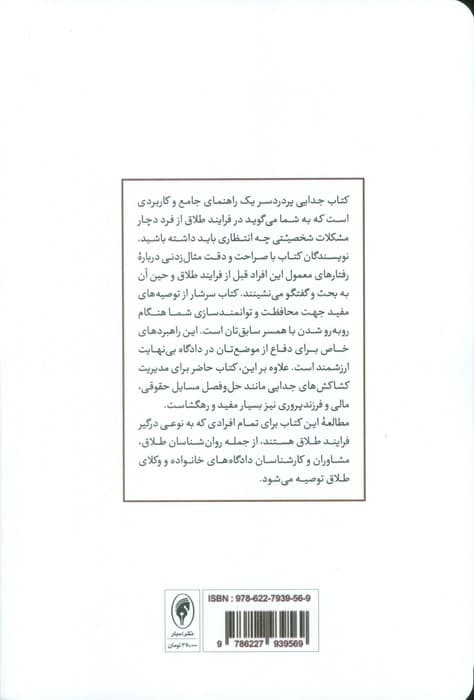 کتاب جدایی پردردسر یک راهنمای جامع و کاربردی
است که به شما می‌گوید در فرایند طلاق از فرد دچار
مشکلات شخصیتی چه انتظاری باید داشته باشید.
نویسندگان کتاب با صراحت و دقت مثال‌زدنی دربارهٔ
رفتارهای معمول این افراد قبل از فرایند طلاق و حین آن
به بحث و گفتگو می‌نشینند. کتاب سرشار از توصیه‌های
مفید جهت محافظت و توانمندسازی شما هنگام
روبه‌رو شدن با همسر سابق‌تان است. این راهبردهای
خاص برای دفاع از موضع‌تان در دادگاه بی‌نهایت
ارزشمند است. علاوه بر این، کتاب حاضر برای مدیریت
کشاکش‌های جدایی مانند حل‌وفصل مسایل حقوقی،
مالی و فرزندپروری نیز بسیار مفید و رهگشاست.
مطالعهٔ این کتاب برای تمام افرادی که به نوعی درگیر
فرایند طلاق هستند، از جمله روان‌شناسان طلاق،
مشاوران و کارشناسان دادگاه‌های خانواده و وکلای
طلاق توصیه می‌شود.
ISBN : 978-622-7939-56-9
9 786227 939569
تومان